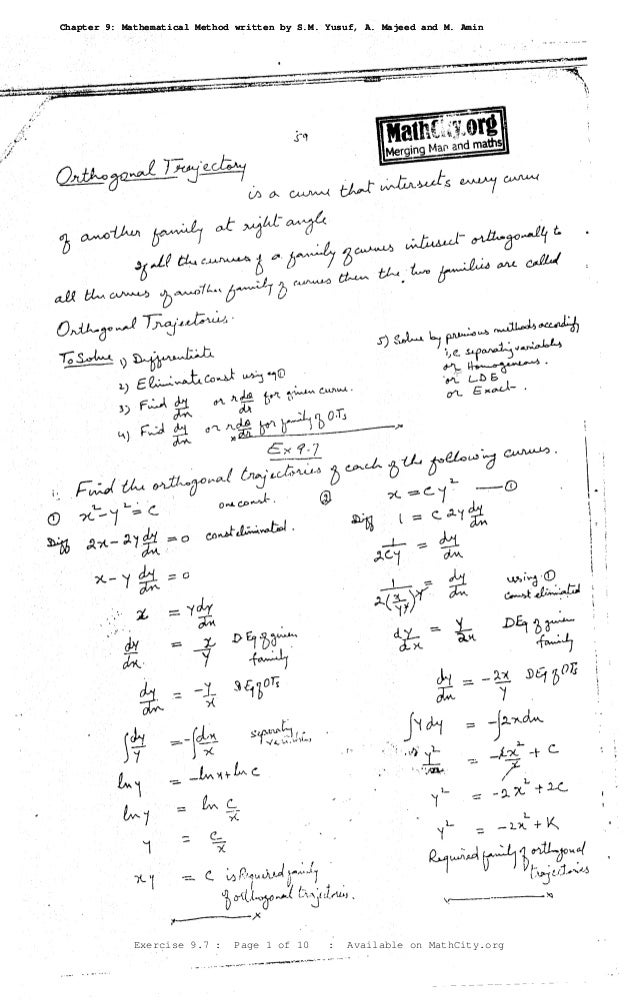 Chapter 9: Mathematical Method written by S.M. Yusuf, A. Majeed and M. Amin
59
MathCity.org
Merging Man and maths
Orthogonal Trajectory
is a curve that intersects every curve
of another family at right angle
If all the curves of a family of curves intersect orthogonally to
all the curves of another family of curves then the two families are called
Orthogonal Trajectories.
To Solve 1) Differentiate
2) Eliminate const using eq ①
3) Find dy/dx or r dθ/dr for given curve.
4) Find dy/dx or r dθ/dr for family of OTs
5) Solve by previous methods accordify
i,e separating variables
or Homogeneous.
or LDE
or Exact.
Ex 9.7
Find the orthogonal trajectories of each of the following curves.
① x² - y² = c one const.
Diff 2x - 2y dy/dx = 0 const eliminated.
x - y dy/dx = 0
x = y dy/dx
dy/dx = x/y DEq of given family
dy/dx = -y/x DEq of OTs
∫dy/y = -∫dx/x separating variables,
ln y = -ln x + ln c
ln y = ln c/x
y = c/x
xy = c is Required family
of orthogonal trajectories.
② x = cy² — ①
Diff 1 = c 2y dy/dx
1/2cy = dy/dx
1/2(x/y²)y = dy/dx using ① const eliminated
dy/dx = y/2x DEq of given family
dy/dx = -2x/y DEq of OTs
∫y dy = -∫2x dx
y²/2 = -2x²/2 + c
y² = -2x² + 2c
y² = -2x² + K
Required family of orthogonal
trajectories
Exercise 9.7 : Page 1 of 10 : Available on MathCity.org